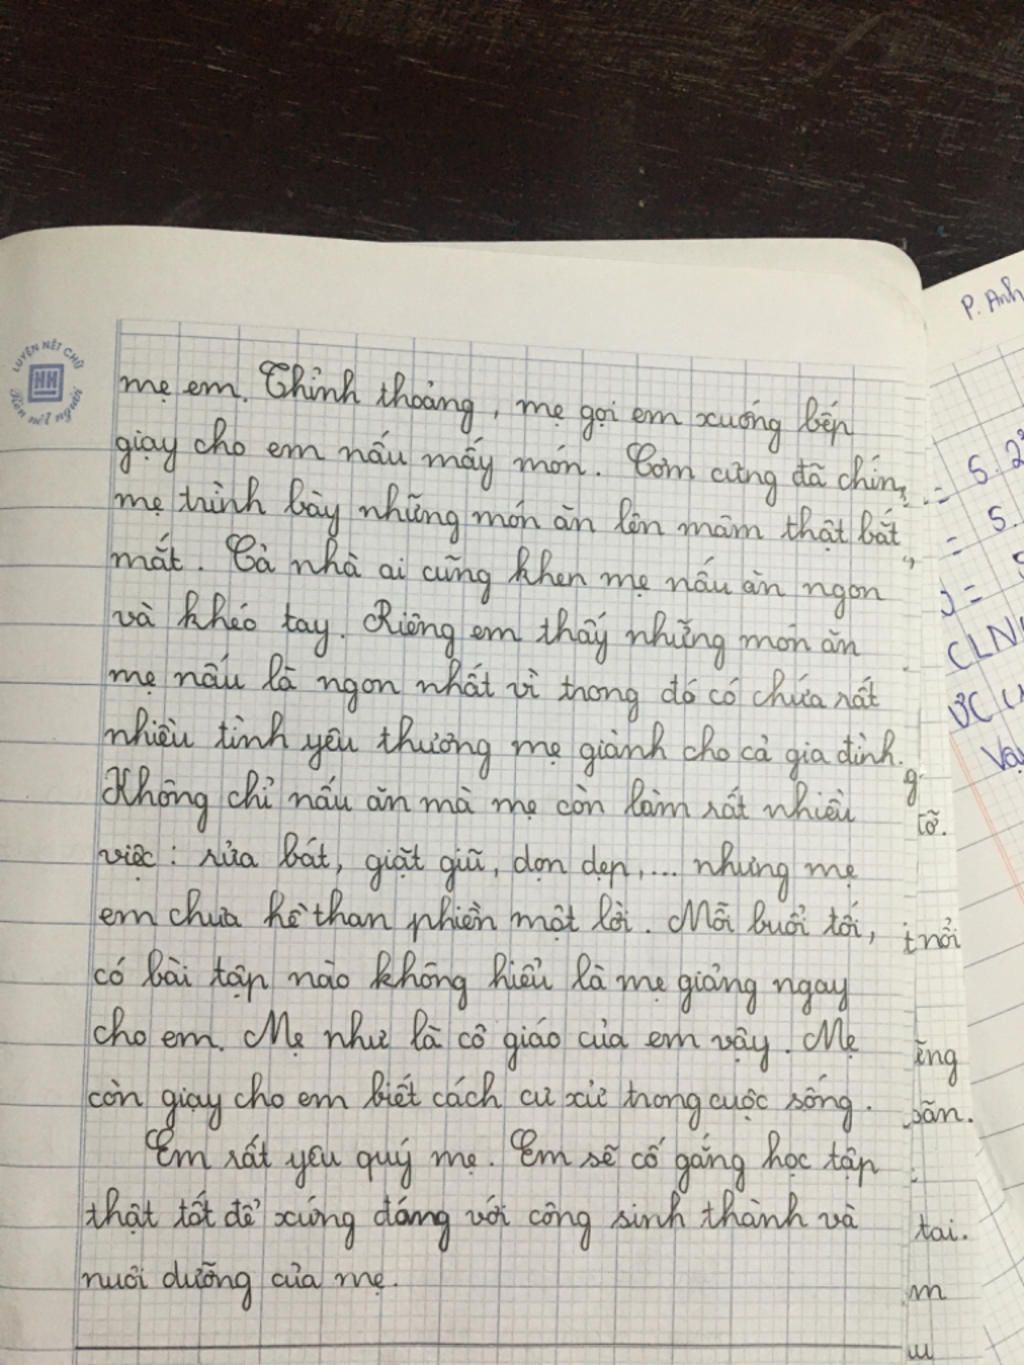 LUYỆN NÉT CHỮ
HH
Rèn nết người
mẹ em. Thỉnh thoảng, mẹ gọi em xuống bếp
giạy cho em nấu mấy món. Cơm cũng đã chín,
mẹ trình bày những món ăn lên mâm thật bắt
mắt. Cả nhà ai cũng khen mẹ nấu ăn ngon
và khéo tay. Riêng em thấy những món ăn
mẹ nấu là ngon nhất vì trong đó có chứa rất
nhiều tình yêu thương mẹ giành cho cả gia đình.
Không chỉ nấu ăn mà mẹ còn làm rất nhiều
việc: rửa bát, giặt giũ, dọn dẹp,... nhưng mẹ
em chưa hề than phiền một lời. Mỗi buổi tối,
có bài tập nào không hiểu là mẹ giảng ngay
cho em. Mẹ như là cô giáo của em vậy. Mẹ
còn giạy cho em biết cách cư xử trong cuộc sống.
Em rất yêu quý mẹ. Em sẽ cố gắng học tập
thật tốt để xứng đáng với công sinh thành và
nuôi dưỡng của mẹ.
P. Anh
= 5.
CLN
ƯC
tai.